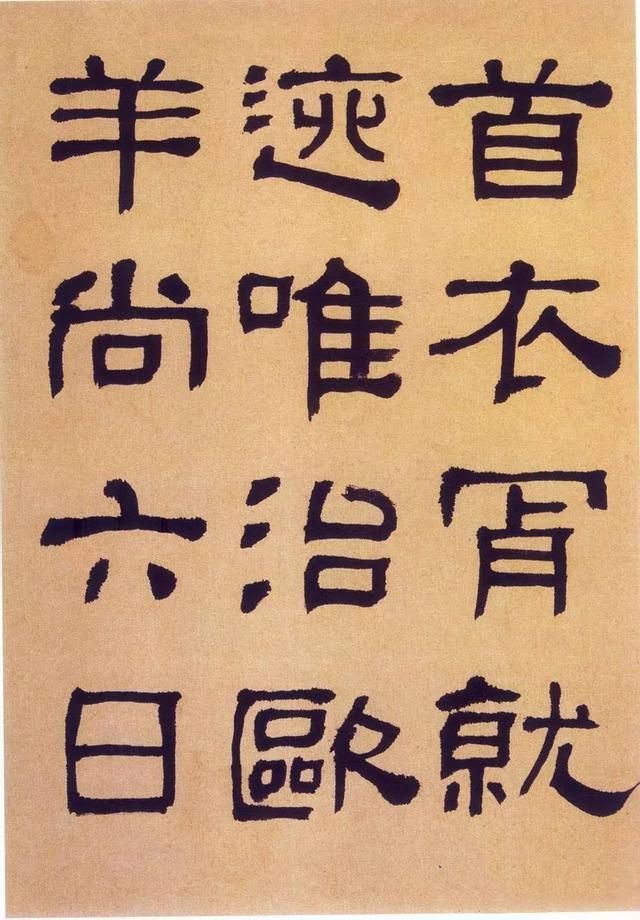 首衣就
迹唯治歐
羊尚六日